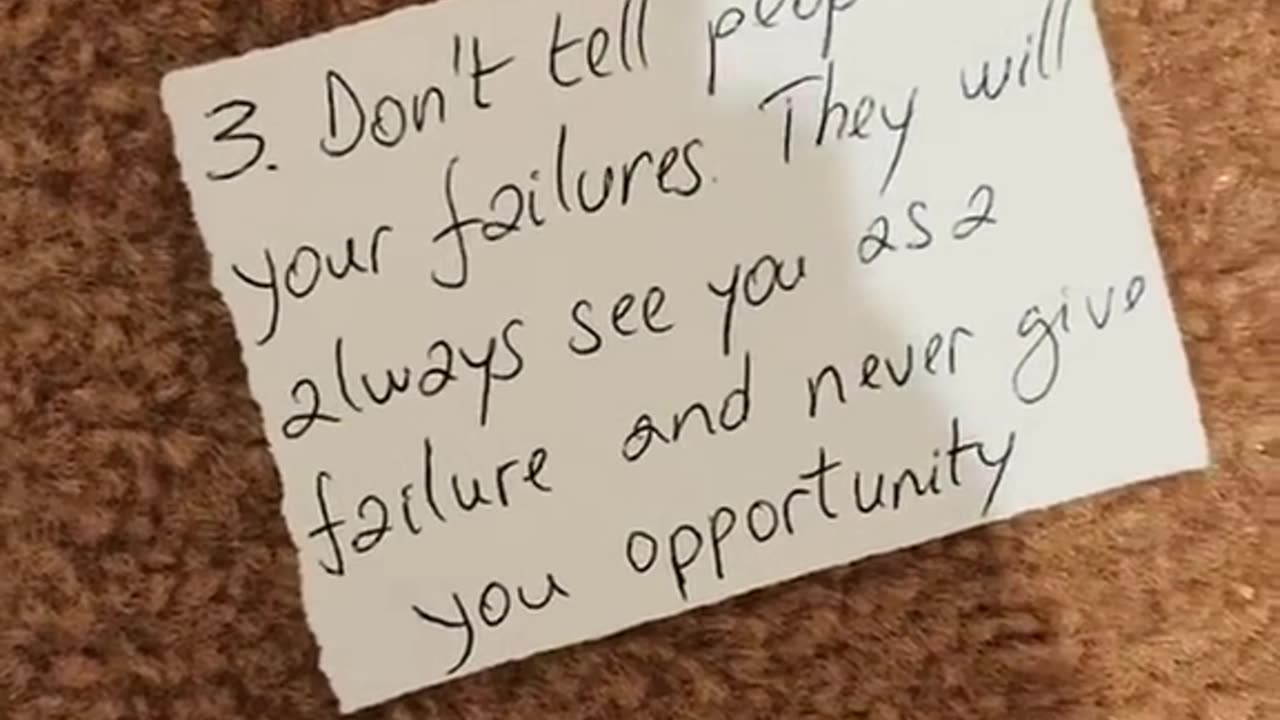 3. Don't tell peop
your failures. They will
always see you as a
failure and never give
you opportunity